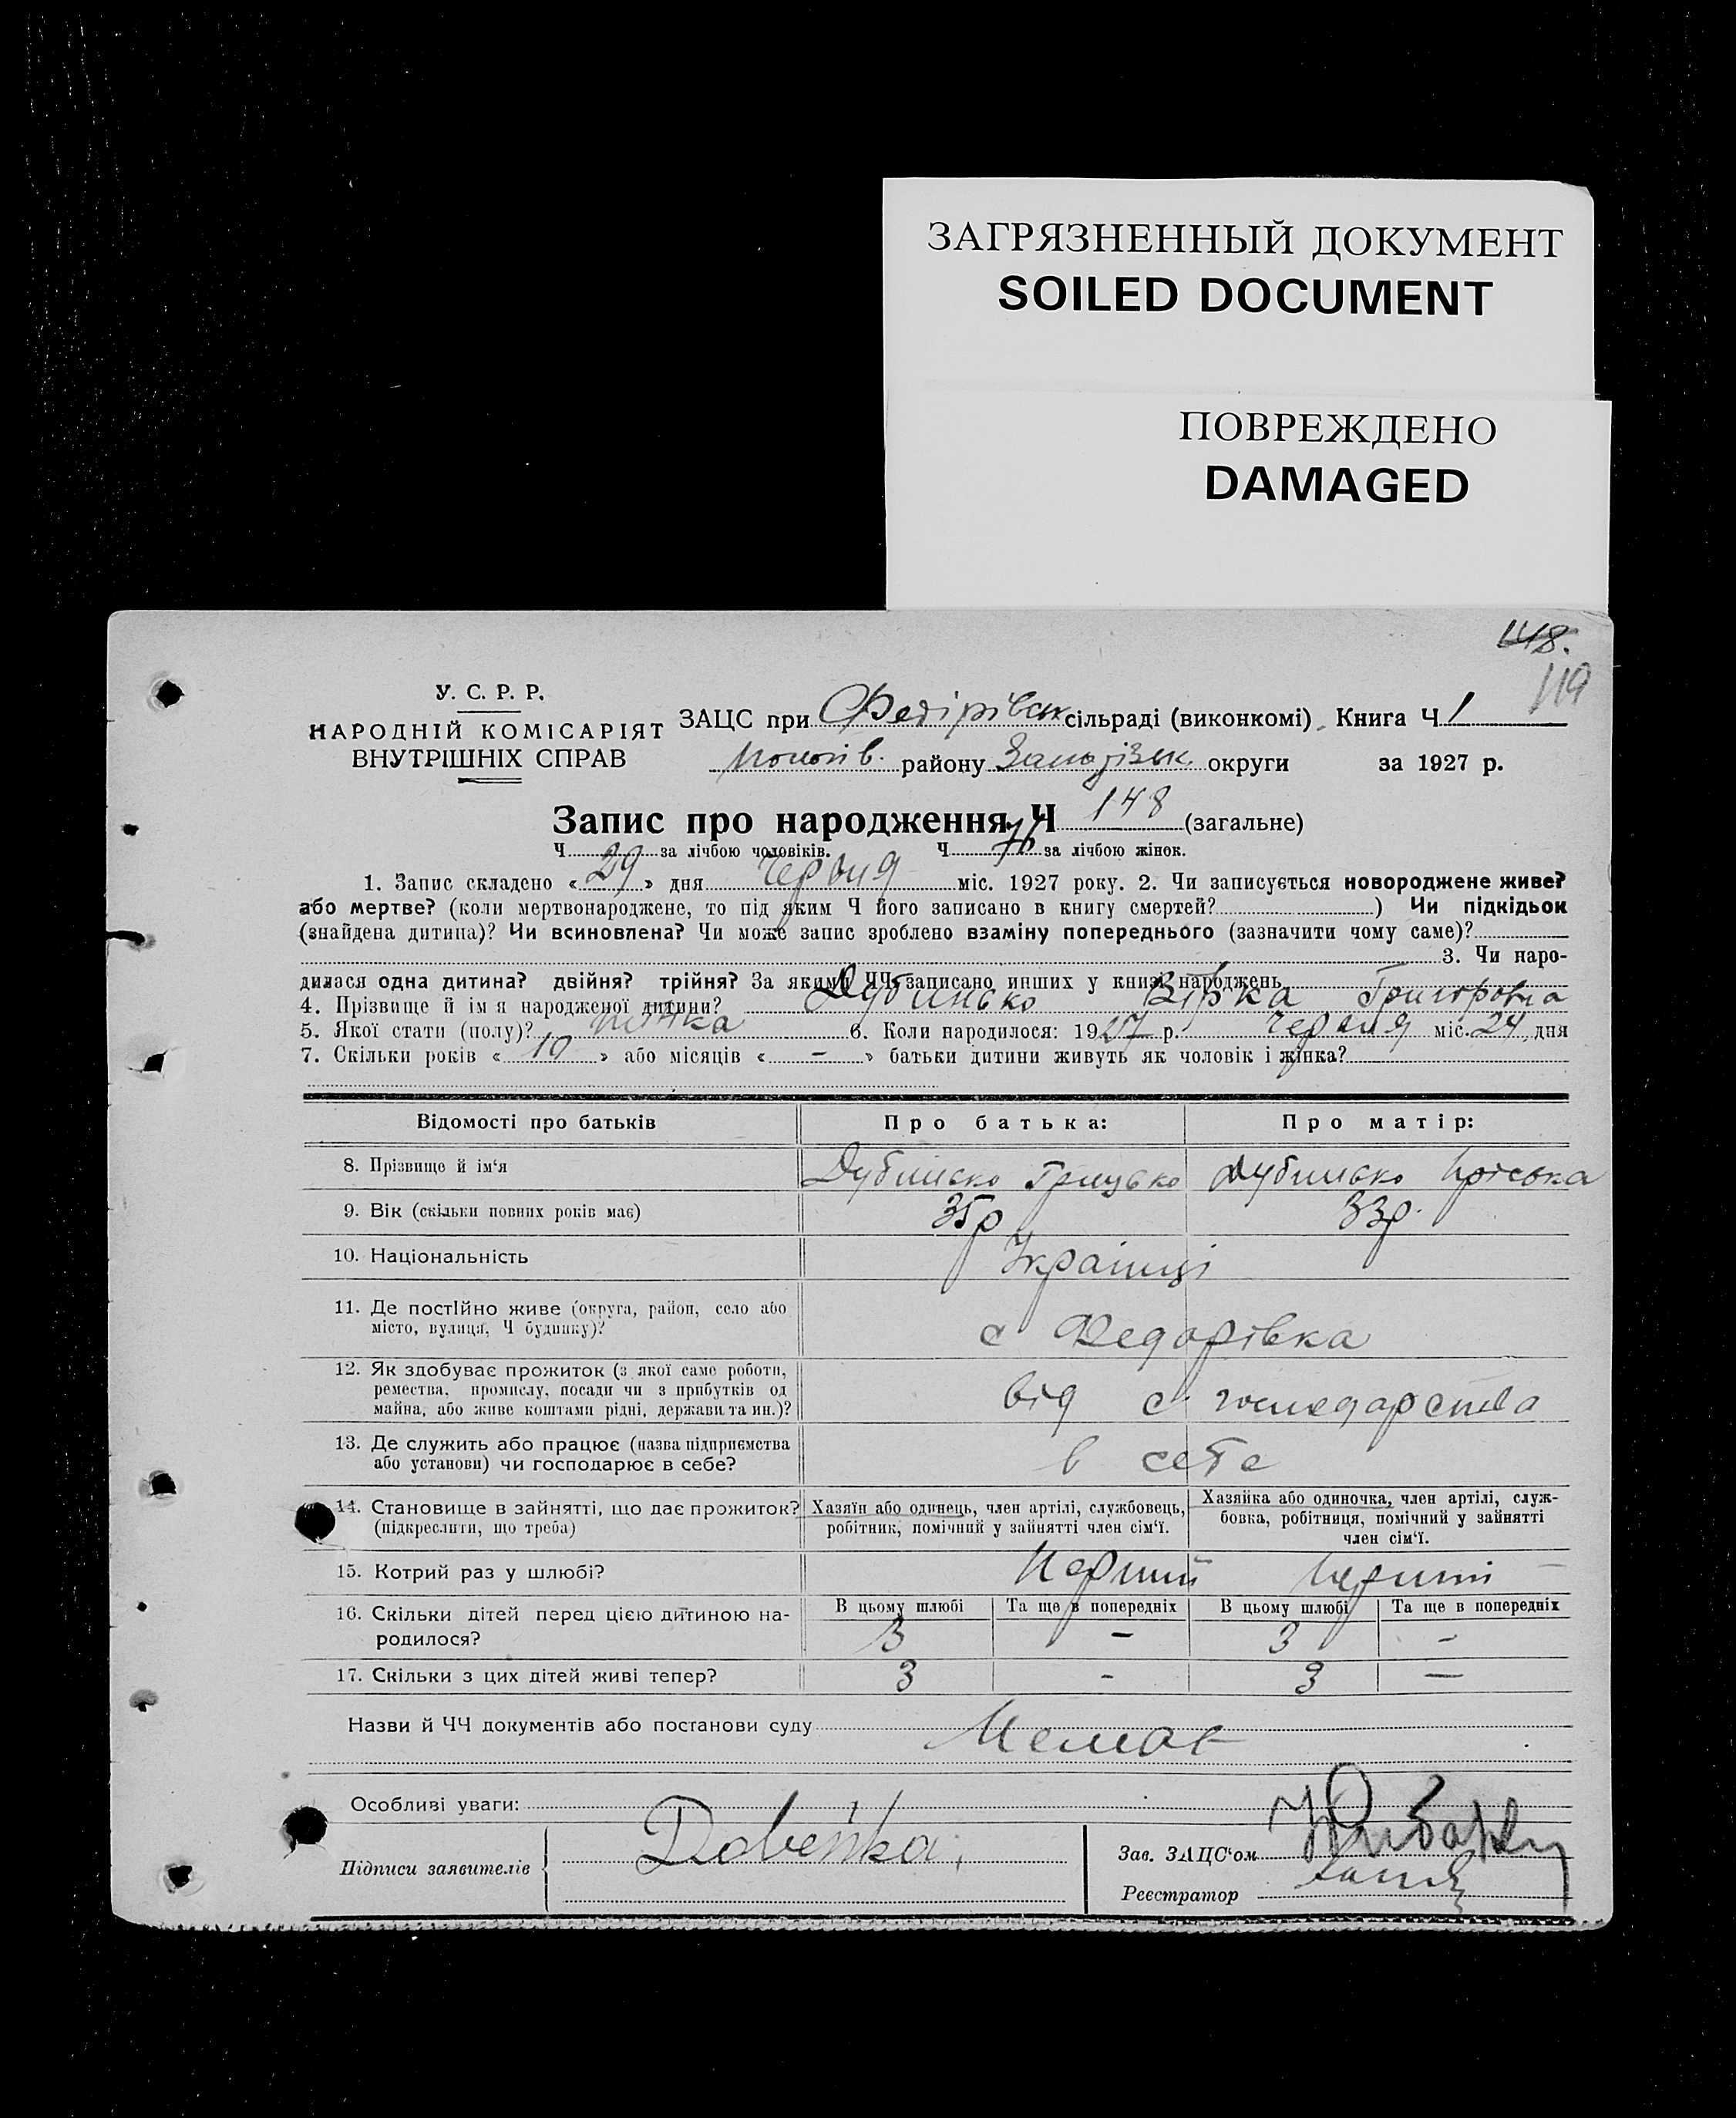 ЗАГРЯЗНЕННЫЙ ДОКУМЕНТ
SOILED DOCUMENT
ПОВРЕЖДЕНО
DAMAGED
148.
119
У. С. Р. Р.
НАРОДНІЙ КОМІСАРІЯТ
ВНУТРІШНІХ СПРАВ
ЗАЦС при Федірівськ сільраді (виконкомі). Книга Ч 1
району округи за 1927 р.
Запис про народження Ч 148 (загальне)
Ч за лічбою чоловіків. Ч за лічбою жінок.
1. Запис складено «29» дня Червня міс. 1927 року. 2. Чи записується новороджене живе?
або мертве? (коли мертвонароджене, то під яким Ч його записано в книгу смертей? ) Чи підкідьок
(знайдена дитина)? Чи всиновлена? Чи може запис зроблено взаміну попереднього (зазначити чому саме)?
3. Чи наро-
дилася одна дитина? двійня? трійня? За якими ЧЧ записано инших у книзі народжень
4. Прізвище й ім я народженої дитини? Дубинсько Вірка Григоровна
5. Якої стати (полу)? жінка 6. Коли народилося: 1927 р. Червня міс. 24 дня
7. Скільки років «10» або місяців «-» батьки дитини живуть як чоловік і жінка?
Відомості про батьків Про батька: Про матір:
8. Прізвище й ім'я Дубинсько Грицько Дубинсько
9. Вік (скільки повних років має) 35р 33р.
10. Національність Українці
11. Де постійно живе (округа, район, село або
місто, вулиця, Ч будинку)? с Федорівка
12. Як здобуває прожиток (з якої саме роботи,
ремества, промислу, посади чи з прибутків од
майна, або живе коштами рідні, держави та ин.)? від с. господарства
13. Де служить або працює (назва підприємства
або установи) чи господарює в себе? в себе
14. Становище в зайнятті, що дає прожиток?
(підкреслити, що треба)
Хазяїн або одинець, член артілі, службовець,
робітник, помічний у зайнятті член сім'ї.
Хазяйка або одиночка, член артілі, служ-
бовка, робітниця, помічний у зайнятті
член сім'ї.
15. Котрий раз у шлюбі? Перший перший
16. Скільки дітей перед цією дитиною на-
родилося?
В цьому шлюбі Та ще в попередніх В цьому шлюбі Та ще в попередніх
3 - 3 -
17. Скільки з цих дітей живі тепер? 3 - 3 -
Назви й ЧЧ документів або постанови суду Немає
Особливі уваги:
Підписи заявителів
Зав. ЗАЦС'ом
Реєстратор